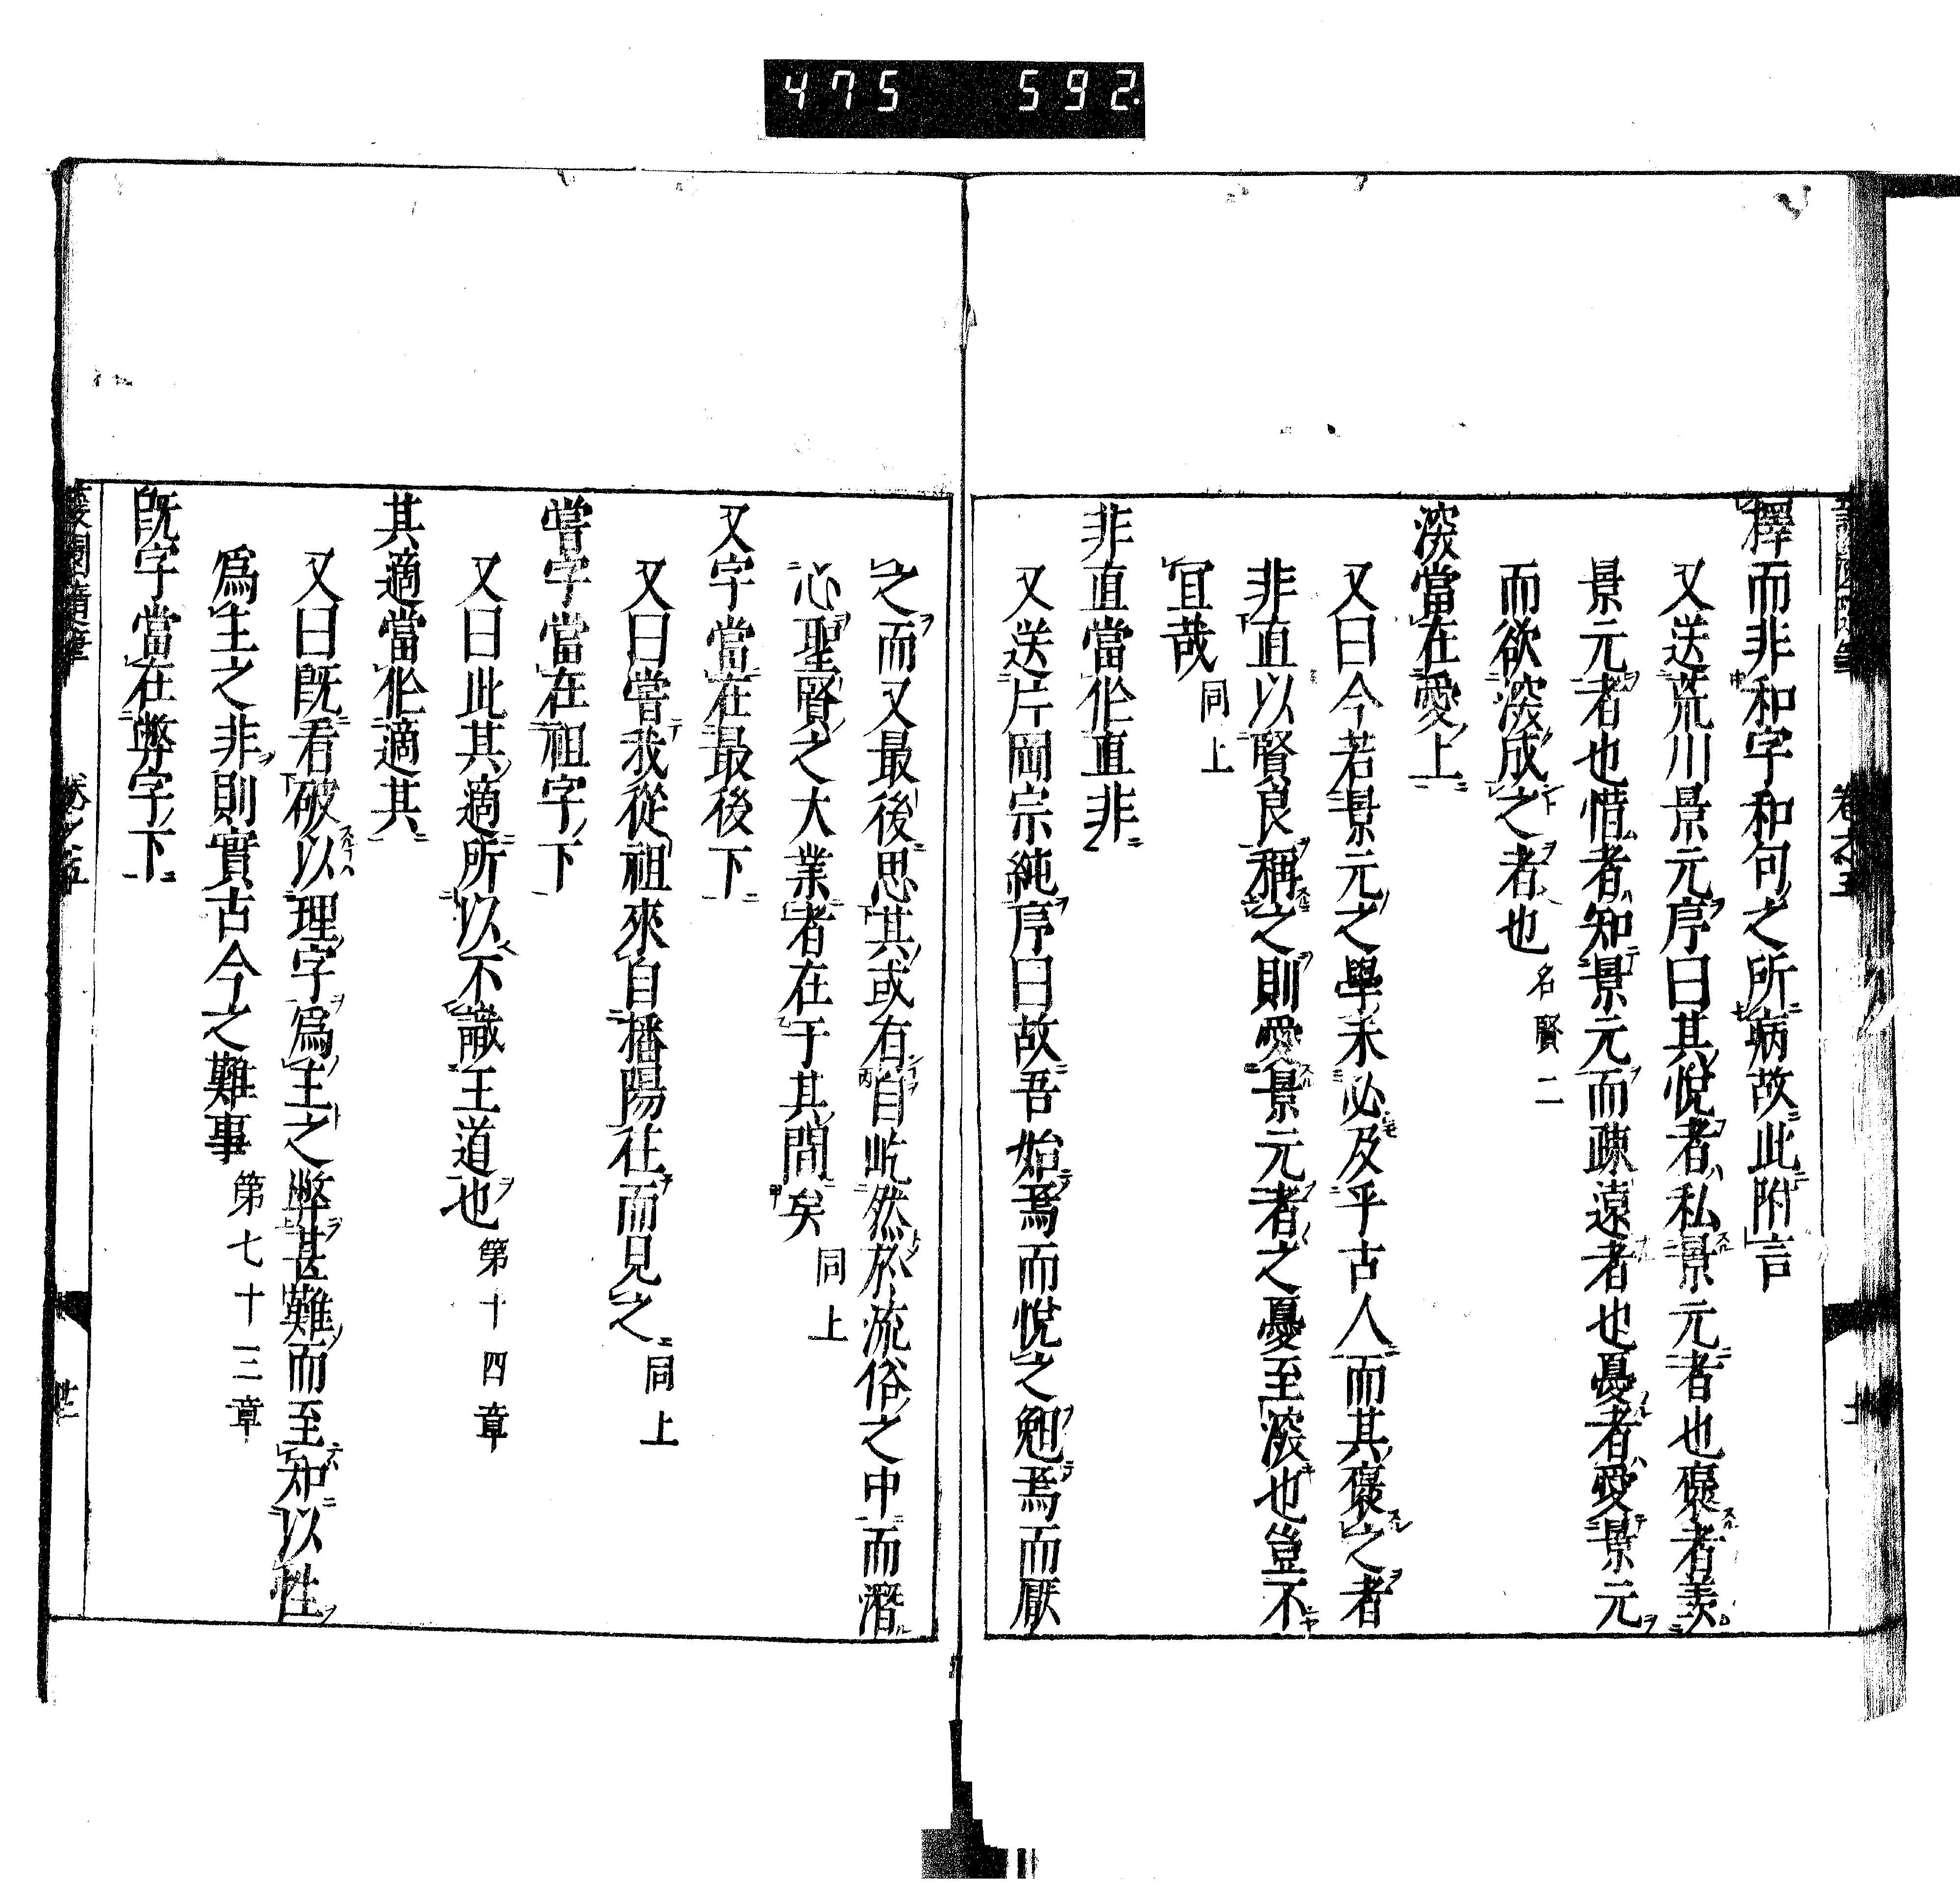 475 592
釋而非和字和句之所病故此附言
又送荒川景元序曰其悅者私景元者也褒者羨
景元者也惜者知景元而疎遠者也憂者愛景元
而欲深成之者也 名賢二
深當在愛上
又曰今若景元之學未必及乎古人而其褒之者
非直以賢良稱之則愛景元者之憂至深也豈不
宜哉 同上
非直當作直非
又送片岡宗純序曰故吾始焉而悅之勉焉而厭
之而又最後思其或有自屹然於流俗之中而潛
心聖賢之大業者在于其間矣 同上
又字當在最後下
又曰嘗我從祖來自播陽往而見之 同上
嘗字當在祖字下
又曰此其適所以不識王道也 第十四章
其適當作適其
又曰既看破以理字爲主之弊甚難而至知以性
爲主之非則實古今之難事 第七十三章
既字當在弊字下